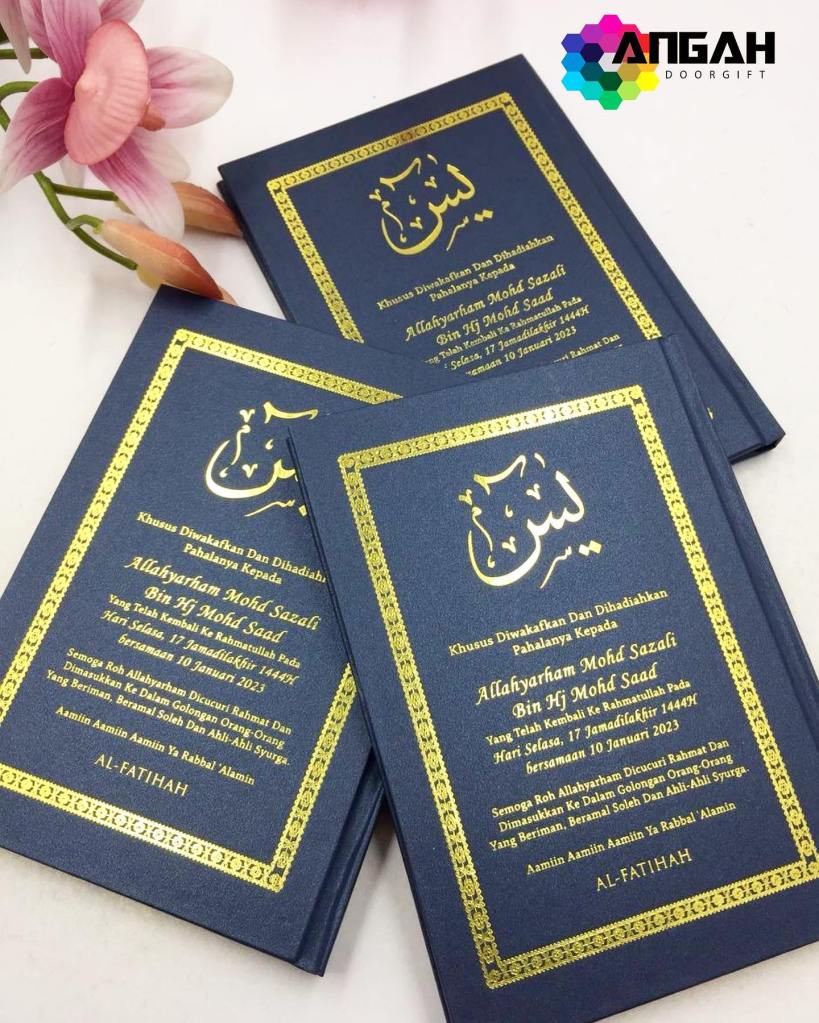 ANGAH
DOORGIFT
يس
Khusus Diwakafkan Dan Dihadiahkan
Pahalanya Kepada
Allahyarham Mohd Sazali
Bin Hj Mohd Saad
Yang Telah Kembali Ke Rahmatullah Pada
Selasa, 17 Jamadilakhir 1444H
bersamaan 10 Januari 2023
Rahmat Dan
يس
Khusus Diwakafkan Dan Dihadiahk
Pahalanya Kepada
Allahyarham Mohd Sazali
Bin Hj Mohd Saad
Yang Telah Kembali Ke Rahmatullah Pada
Hari Selasa, 17 Jamadilakhir 1444H
bersamaan 10 Januari 2023
Semoga Roh Allahyarham Dicucuri Rahmat Dan
Dimasukkan Ke Dalam Golongan Orang-Orang
Yang Beriman, Beramal Soleh Dan Ahli-Ahli Syurga.
Aamiin Aamiin Aamiin Ya Rabbal 'Alamin
AL-FATIHAH
يس
Khusus Diwakafkan Dan Dihadiahkan
Pahalanya Kepada
Allahyarham Mohd Sazali
Bin Hj Mohd Saad
Yang Telah Kembali Ke Rahmatullah Pada
Hari Selasa, 17 Jamadilakhir 1444H
bersamaan 10 Januari 2023
Semoga Roh Allahyarham Dicucuri Rahmat Dan
Dimasukkan Ke Dalam Golongan Orang-Orang
Yang Beriman, Beramal Soleh Dan Ahli-Ahli Syurga.
Aamiin Aamiin Aamiin Ya Rabbal 'Alamin
AL-FATIHAH